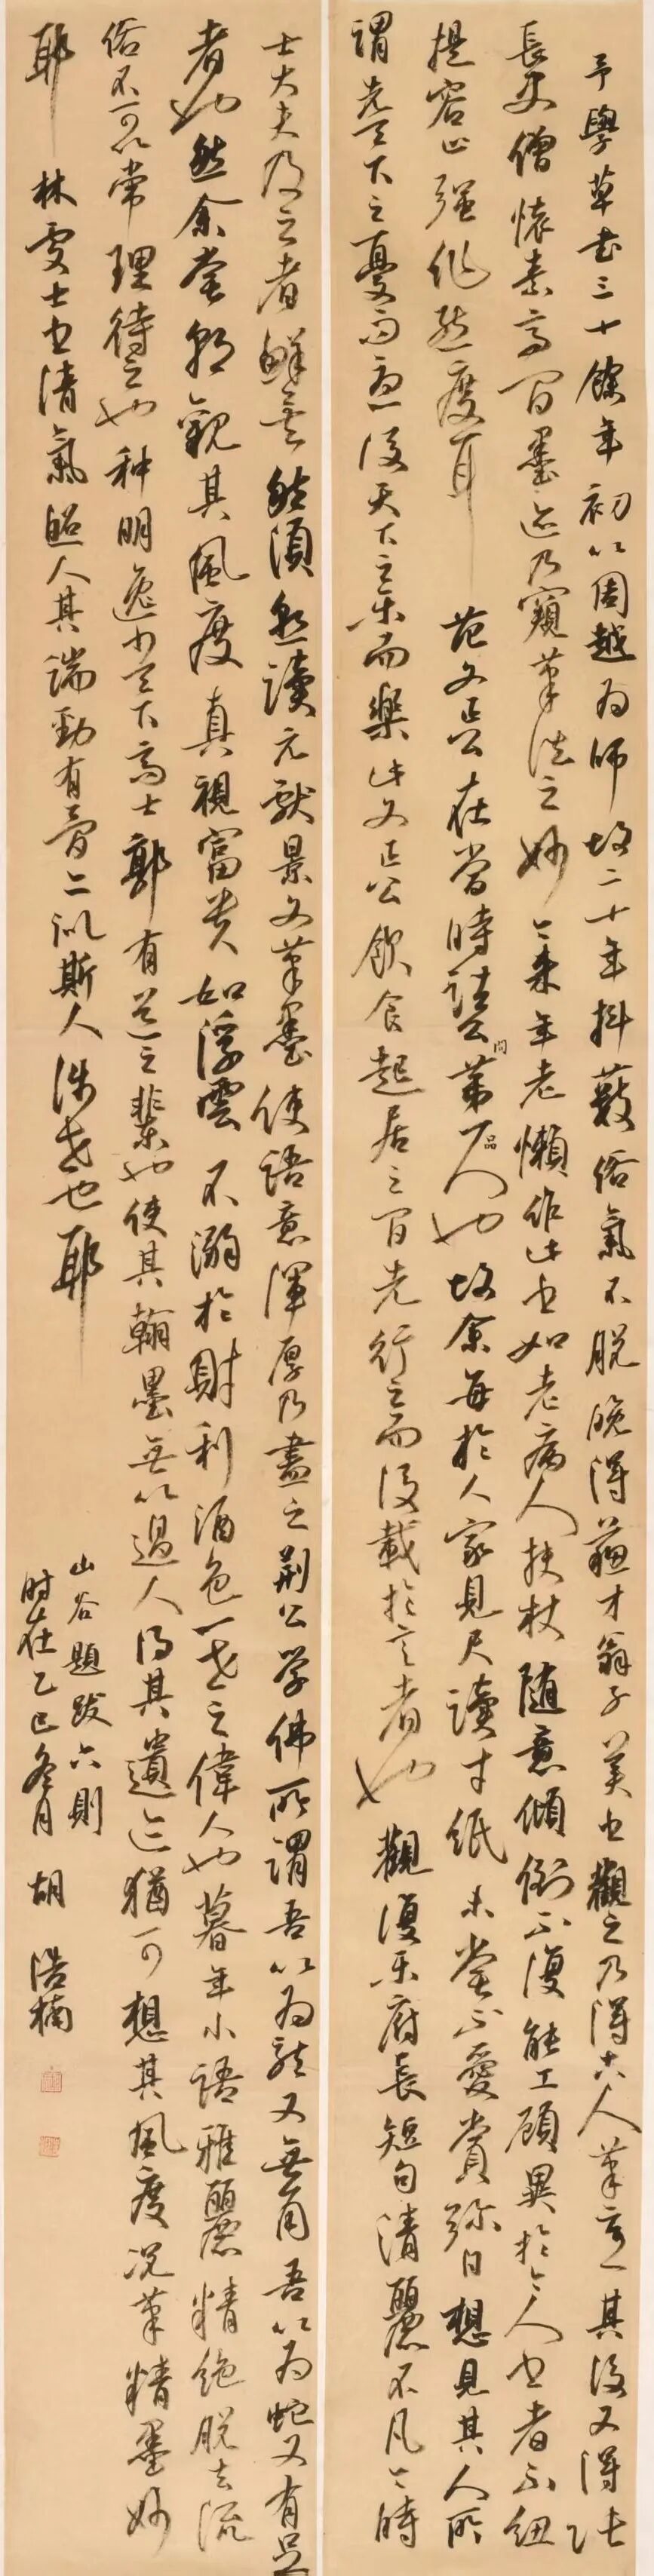 予學草书三十餘年初以周越为师故二十年抖擻俗氣不脱晚得蘇才翁子美书觀之乃得古人筆意其後又得张
長史僧懷素高閒墨迹乃窺筆法之妙今来年老懶作此书如老病人扶杖随意傾倒不復能工顾異於今人书者不纽
提容止强作態度耳 范文正公在當時諸公間第一品人也故余每於人家見尺讀寸纸未嘗不愛賞弥日想見其人所
謂先天下之憂而憂後天下之樂而樂此文正公飲食起居之間先行之而後載於言者也 觀復樂府長短句清麗不凡今時
士大夫及之者鮮矣然須熟讀元獻景文筆墨使語意渾厚乃盡之荆公学佛所謂吾以为龍又無角吾以为蛇又有足
者也然余嘗熟觀其風度真視富贵如浮雲不溺於財利酒色一世之偉人也暮年小語雅麗精绝脱去流
俗不可以常理待之也 种明逸少天下高士郭有道之輩也使其翰墨無以過人得其遺迹猶可想其風度况筆精墨妙
耶 林處士书清氣照人其端勁有骨亦似斯人涉世也耶
山谷題跋六則
时在乙巳冬月 胡浩楠